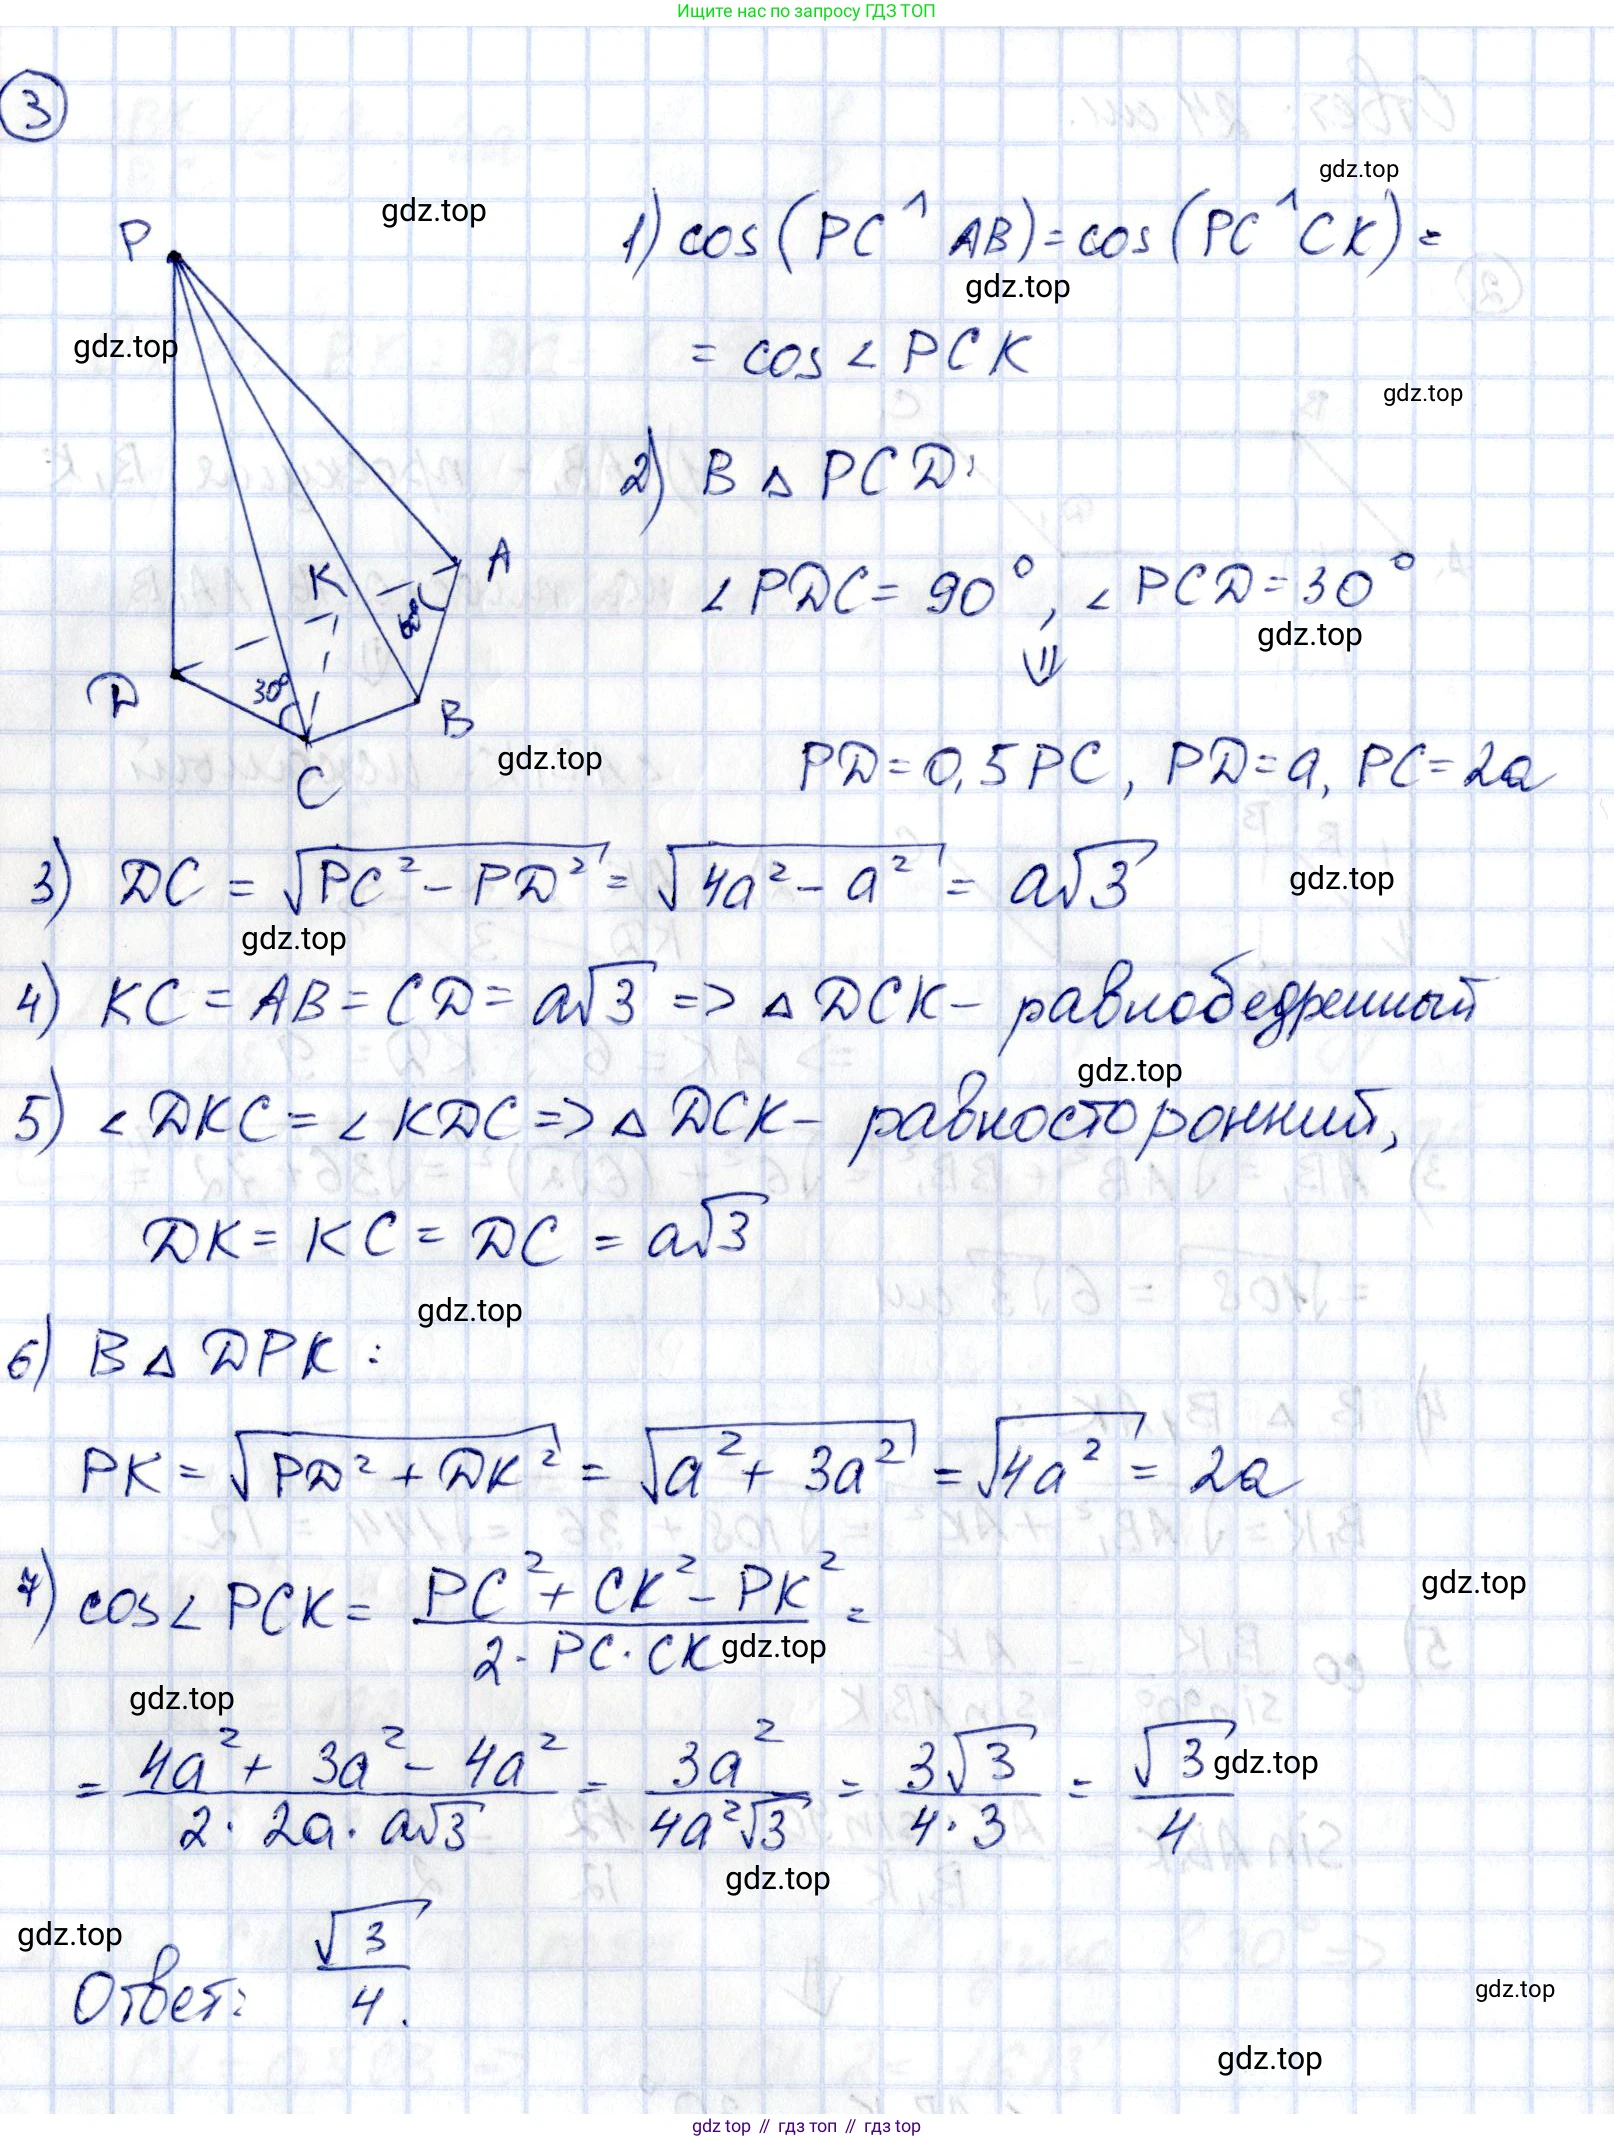 Ищите нас по запросу ГДЗ ТОП
3
gdz.top
gdz.top
P
1) cos(PC^AB) = cos(PC^CK) =
gdz.top
gdz.top
= cos∠PCK
gdz.top
2) В △ PCD:
K
A
60°
∠PDC = 90°, ∠PCD = 30°
gdz.top
⇓
D
30°
B
C
gdz.top
PD = 0,5PC, PD = a, PC = 2a
3) DC = √(PC² - PD²) = √(4a² - a²) = a√3
gdz.top
gdz.top
4) KC = AB = CD = a√3 => △ DCK - равнобедренный
gdz.top
5) ∠DKC = ∠KDC => △ DCK - равносторонний,
DK = KC = DC = a√3
gdz.top
6) В △ DPK:
PK = √(PD² + DK²) = √(a² + 3a²) = √(4a²) = 2a
7) cos∠PCK = (PC² + CK² - PK²)/(2·PC·CK) =
gdz.top
gdz.top
gdz.top
= (4a² + 3a² - 4a²)/(2·2a·a√3) = 3a²/(4a²√3) = 3√3/(4·3) = √3/4
gdz.top
gdz.top
gdz.top
Ответ: √3/4.
gdz.top
gdz.top
gdz top // гдз топ // гдз top